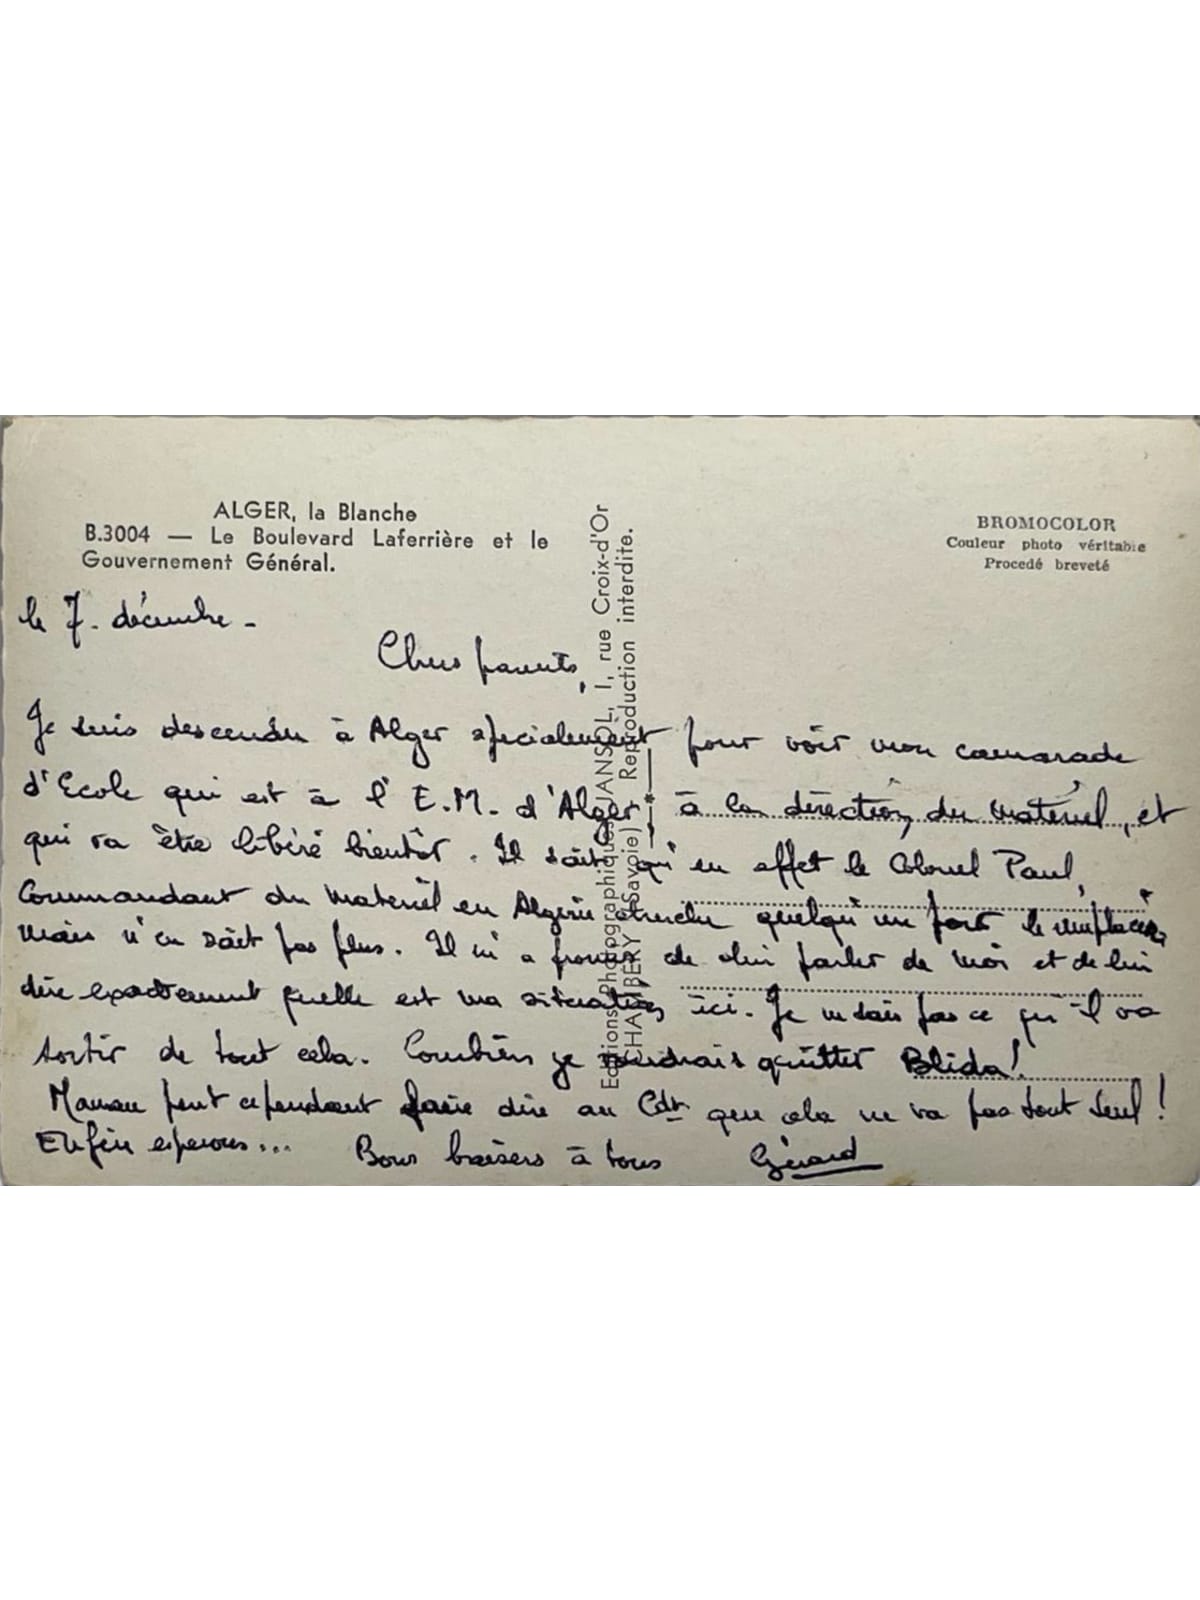 ALGER, la Blanche
B.3004 — Le Boulevard Laferrière et le
Gouvernement Général.
BROMOCOLOR
Couleur photo véritable
Procedé breveté
Editions photographiques JANSOL, 1, rue Croix-d'Or
CHAMBÉRY (Savoie) Reproduction interdite.
le 7. décembre -
Chers parents,
Je suis descendu à Alger spécialement pour voir mon camarade
d'Ecole qui est à l'E.M. d'Alger à la direction du matériel, et
qui va être libéré bientôt. Il sait qu'en effet le Colonel Paul,
Commandant du Matériel en Algérie cherche quelqu'un pour le remplacer,
mais n'en sait pas plus. Il m'a promis de lui parler de moi et de lui
dire exactement quelle est ma situation ici. Je ne sais pas ce qu'il va
sortir de tout cela. Combien je voudrais quitter Blida!
Maman peut cependant faire dire au Cdt que cela ne va pas tout seul!
Enfin espérons... Bons baisers à tous Gérard